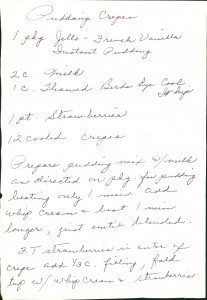 Pudding Crepes
1 pkg Jello - French Vanilla
Instant Pudding
2 c. Milk
1 c. Thawed Birds Eye Cool
Whip
1 pt. Strawberries
12 cooked crepes
Prepare pudding mix w/milk
as directed on pkg. for pudding
beating only 1 min. add
whip cream & beat 1 min
longer, just until blended.
2 T strawberries in center of
crepe add 1/3 c. filling, fold
top w/ whip cream & strawberries